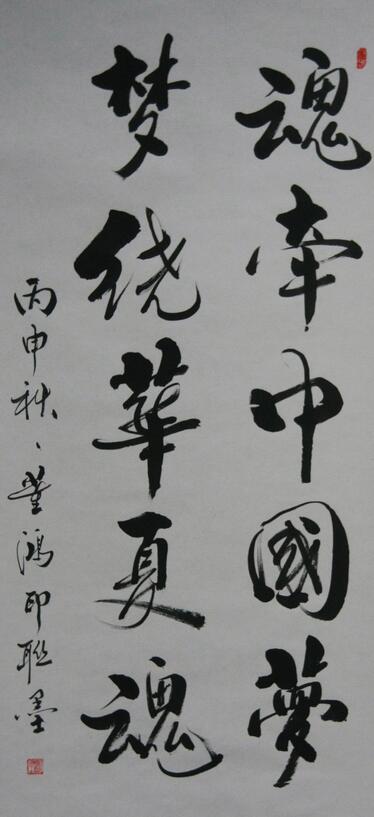 魂牵中國夢
梦绕華夏魂
丙申秋、董鴻印联墨